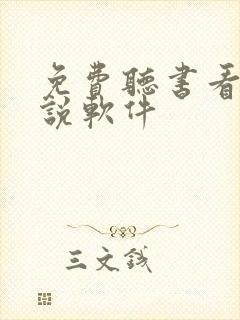 免費聽書看
說軟件
三文錢